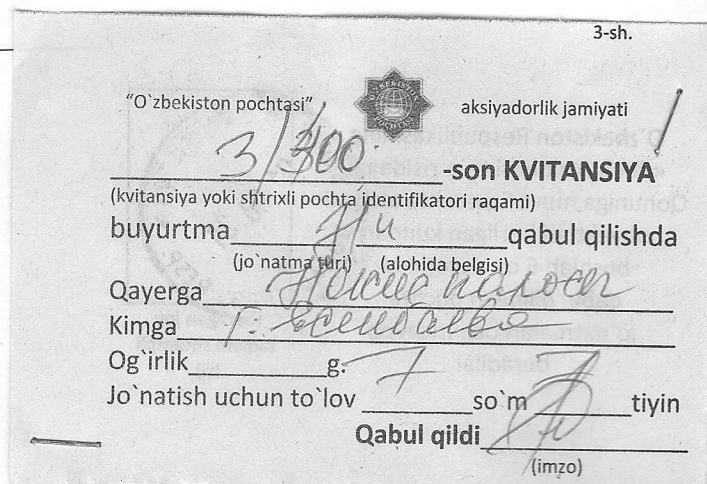 3-sh.
"O`zbekiston pochtasi" aksiyadorlik jamiyati
3/300 -son KVITANSIYA
(kvitansiya yoki shtrixli pochta identifikatori raqami)
buyurtma qabul qilishda
(jo`natma turi) (alohida belgisi)
Qayerga
Kimga Г. Есенбаева
Og`irlik g.
Jo`natish uchun to`lov so`m tiyin
Qabul qildi
(imzo)